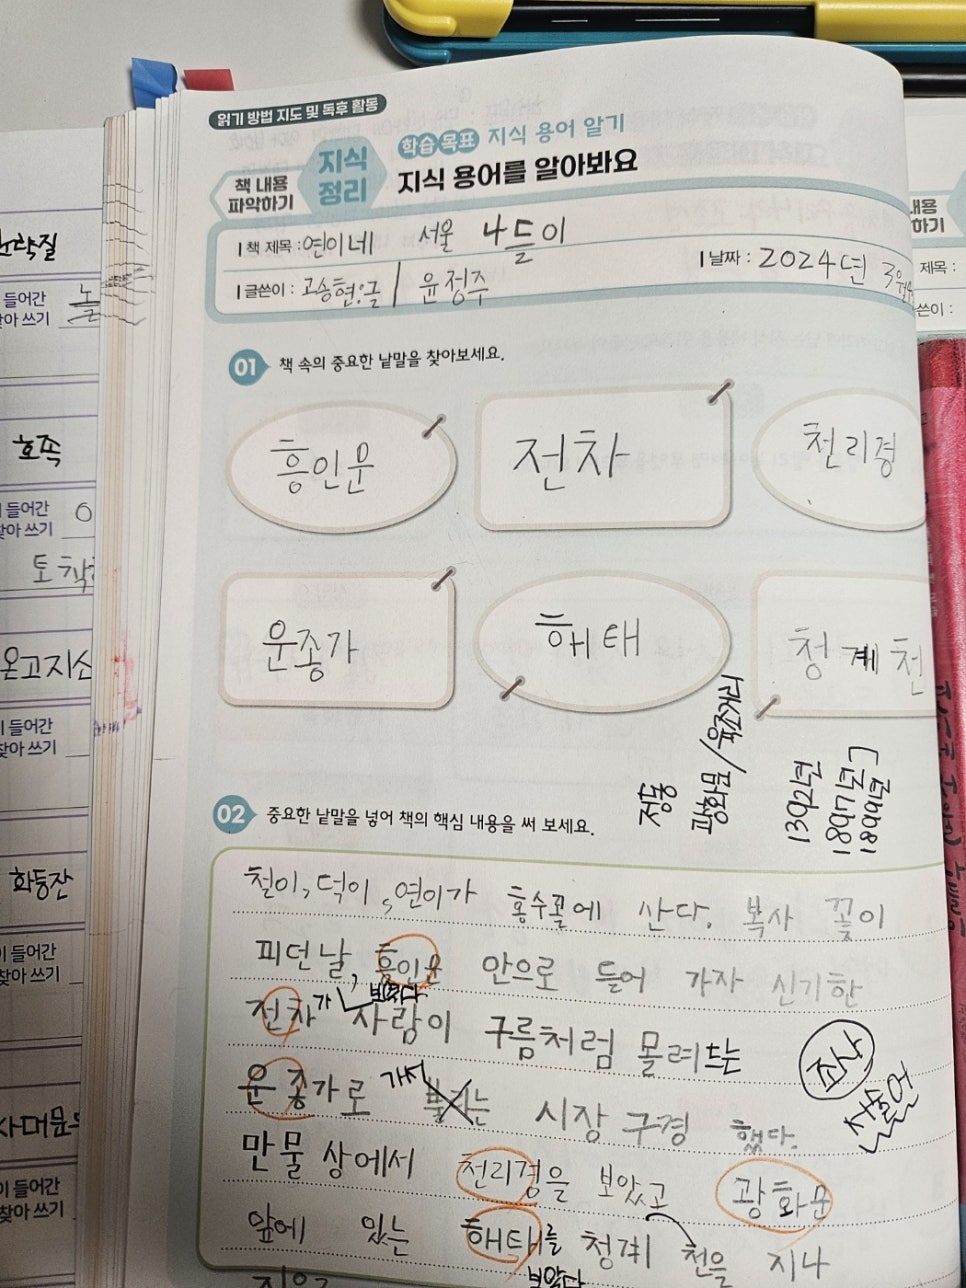 읽기 방법 지도 및 독후 활동
책 내용
파악하기
지식
정리
학습 목표 지식 용어 알기
지식 용어를 알아봐요
책 제목 : 연이네 서울 나들이
글쓴이 : 고승현:글 / 윤정주
날짜 : 2024년 3월
01 책 속의 중요한 낱말을 찾아보세요.
흥인문
전차
천리경
운종가
해태
청계천
정동
광화문/육조거리
1392년
1897년
1899년
02 중요한 낱말을 넣어 책의 핵심 내용을 써 보세요.
철이, 덕이, 연이가 홍수골에 산다. 복사 꽃이
피던 날, 흥인문 안으로 들어 가자 신기한
전차가 보였다 사람이 구름처럼 몰려드는
운종가로 가서 시장 구경 했다.
만물상에서 천리경을 보았고 광화문
앞에 있는 해태를 청계 천을 지나
보았다
조사
서술어
들어간
찾아 쓰기
호족
들어간
찾아 쓰기
온고지신
들어간
찾아 쓰기
화등잔
들어간
찾아 쓰기
들어간
찾아 쓰기
내용
하기
제목 :
쓴이 :